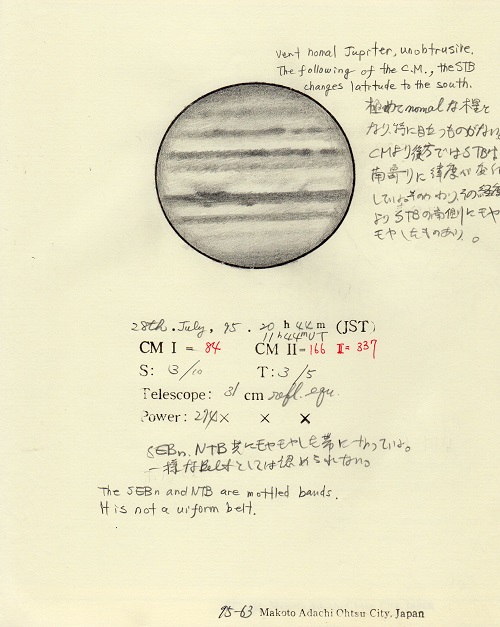 Vent nomal Jupiter, unobtrusire.
The following of the C.M., the STB
changes latitude to the south.
極めてnomalな木星と
なり、特に目立つものがない。
CMより後方ではSTBは
南寄りに緯度が変化
している。
より STBの南側にモヤ
モヤしたものあり。
28th. July, 95. 20h 44m (JST)
11h44mUT
CM I = 84 CM II = 166 II= 337
S: 3/10 T: 3/5
Telescope: 31 cm refl. equ.
Power: 274× × ×
SEBn, NTB共にモヤモヤした帯になっている。
一様なBeltとしては認められない。
The SEBn and NTB are mottled bands.
It is not a uiform belt.
95-63 Makoto Adachi Ohtsu-City, Japan